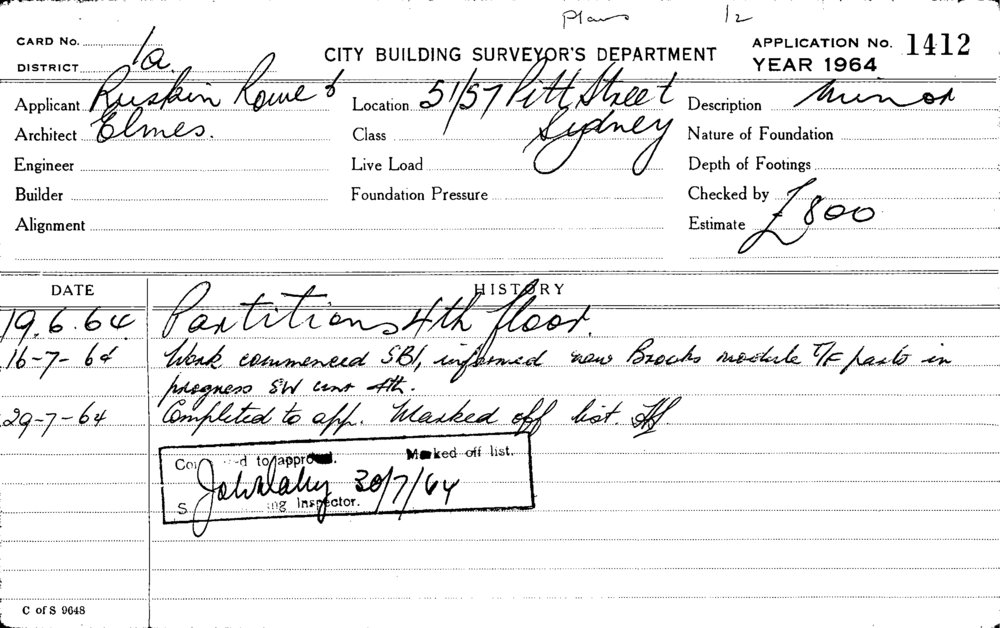 Plans 12
CARD No. CITY BUILDING SURVEYOR'S DEPARTMENT APPLICATION No. 1412
DISTRICT 1a YEAR 1964
Applicant Ruskin Rowe & Location 51/57 Pitt Street Description Minor
Architect Elmes. Class Sydney Nature of Foundation
Engineer Live Load Depth of Footings
Builder Foundation Pressure Checked by
Alignment Estimate £800
DATE HISTORY
19.6.64 Partitions 4th floor.
16-7-64 Work commenced SBI, informed new Brooks module T/F parts in
progress SW 4th.
29-7-64 Completed to app. Marked off list.
to approval. Marked off list.
30/7/64
Inspector.
C of S 9648